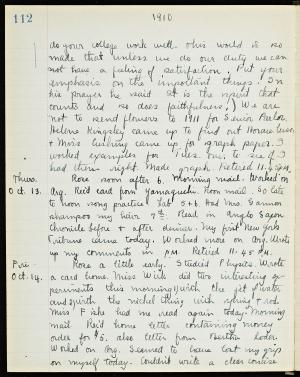 112
1910
do your college work well. This world is so
made that unless we do our duty we can
not have a feeling of satisfaction. Put your
emphasis on the important things. In
his prayer he said It is the spirit that
counts and so does faithfulness.) We are
not to send flowers to 1911 for Senior Parlor.
Helene Kingsley came up to find out Horace lesson
+ Miss Cushing came up for graph paper. I
worked examples for over to see if I
had them right. Made graph. Retired 11.15 P.M.
Thurs. Rose soon after 6. Morning mail. Worked on
Oct. 13. Arg. Rec'd card from Yamaguchi. Noon mail. So late
to noon song practice. Lat 5+6. Had Mrs. Gannon
shampoo my hair 7th. Read in Anglo Saxon
Chronicle before + after dinner. My first New York
Tribune came today. Worked more on Arg. Wrote
up my comments in P.M. Retired 11.45 P.M.
Fri. Rose a little early. Studied Physics. Wrote
Oct. 14. a card home. Miss Wick did two interesting ex-
periments this morning, (1) with the jet of water
and (2) with the nickel thing with spring + rod.
Miss Fiske had me read again today. Morning
mail. Rec'd home letter containing money
order for $5. also letter from Bertha
Worked on Arg. Seemed to have lost my grip
on myself today. Couldn't write a clear concise